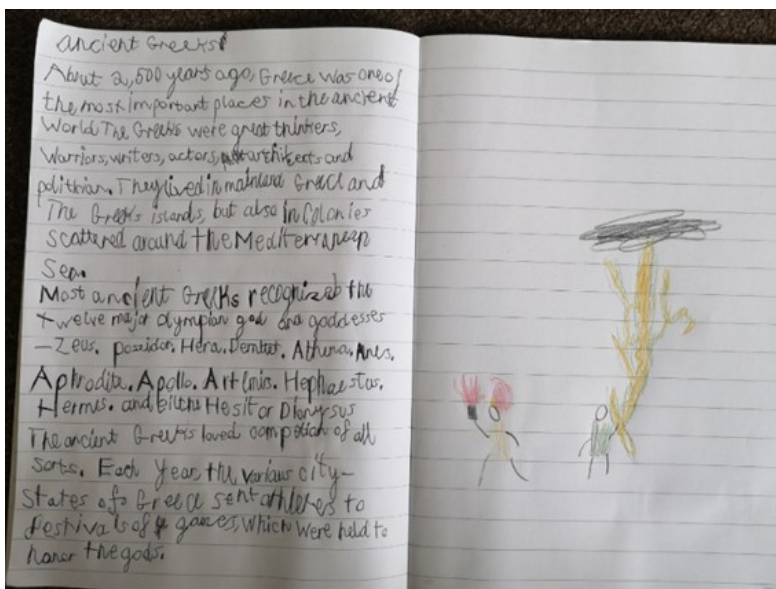 ancient Greeks
About 2,500 years ago, Greece was one of
the most important places in the ancient
World The Greeks were great thinkers,
Warriors, writers, actors, architects and
polithian. They lived in mainland Greece and
The Greeks islands, but also in Colonies
Scattered around the Mediterranean
Sea.
Most ancient Greeks recognized the
twelve major olympian god and goddesses
-Zeus. poseidon. Hera. Demtet. Athena. Ares.
Aphrodite. Apollo. Artemis. Hephaestus.
Hermes. and eilthe Hesit or Dionysus
The ancient Greeks loved compotian of all
sorts. Each Year, the various city-
States of Greece sent athletes to
festivals of games, which were held to
honor the gods.